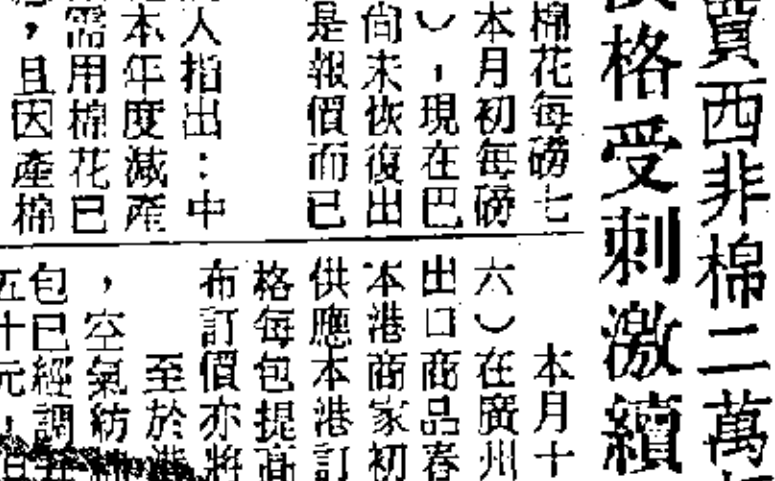 買西非棉二萬
價格受刺激續
棉花每磅七
本月初每磅
），現在巴
尙未恢復出
是報價而已
人指出：中
本年度減產
需用棉花已
，且因產棉
本月十
六）在廣州
出口商品春
本港商家初
供應本港訂
格每包提高
布訂價亦將
至於
，空氣紡
包已經調
五十元，